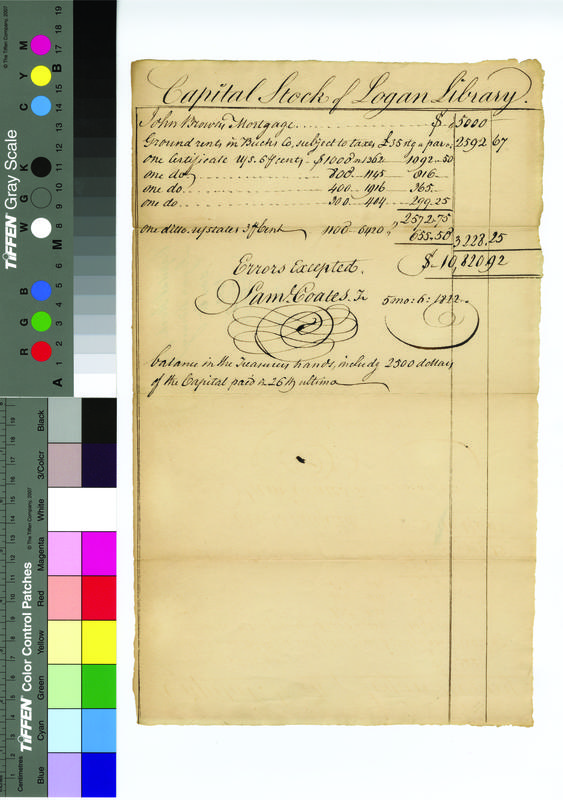 Capital Stock of Logan Library.
John Brown's Mortgage $ 5000
Ground rents in Bucks Co, subject to taxes £35 2592 67
one Certificate U,S. 6 ⅌ cents. $1000 1362 1092.50
one do 800 1145 816
one do. 400 1916 365
one do. 300 404 299.25
2572.75
one ditto. 3 ⅌ Cent 1100 6420 655.50 3,228.25
Errors Excepted. $ 10,820,92
Saml. Coates. Tr 5 mo: 6: 1822
balance in the Treasurers hands, includg 2300 dollars
of the Capital paid 26th ultimo
© The Tiffen Company, 2007
TIFFEN Gray Scale
R G B W G K C Y M
A 1 2 3 4 5 6 M 8 9 10 11 12 13 14 15 B 17 18 19
TIFFEN Color Control Patches
© The Tiffen Company, 2007
Centimetres
Blue Cyan Green Yellow Red Magenta White 3/Color Black